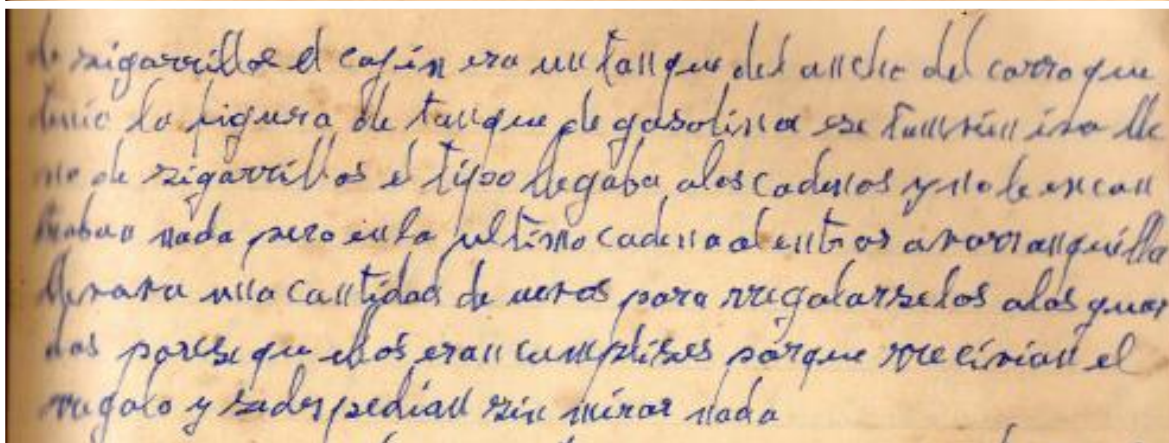 de zigarrillos el cojin era un tanque del ancho del carro que
tenia la figura de tanque de gasolina ese tamvien iva lle
no de zigarrillos el tipo llegaba alos cadenas y no le encon
traban nada pero en la ultima cadena al entrar a varranquilla
llevava una cantidad de para rregalarselos alos guar
das parese que ellos eran cumplises porque rrecivian el
rregalo y sades pedian sin mirar nada